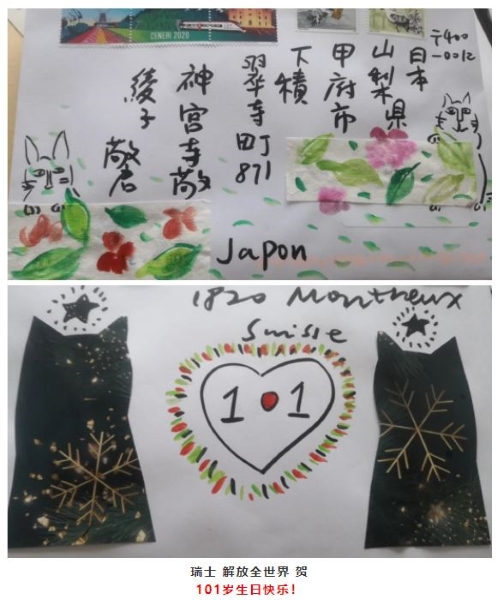 CENERI 2020
〒400
-0012
日本
山梨県
甲府市
下積
翠寺町871
神宮寺敬
綾子
Japon
1820 Montreux
Suisse
101
瑞士 解放全世界 贺
101岁生日快乐！